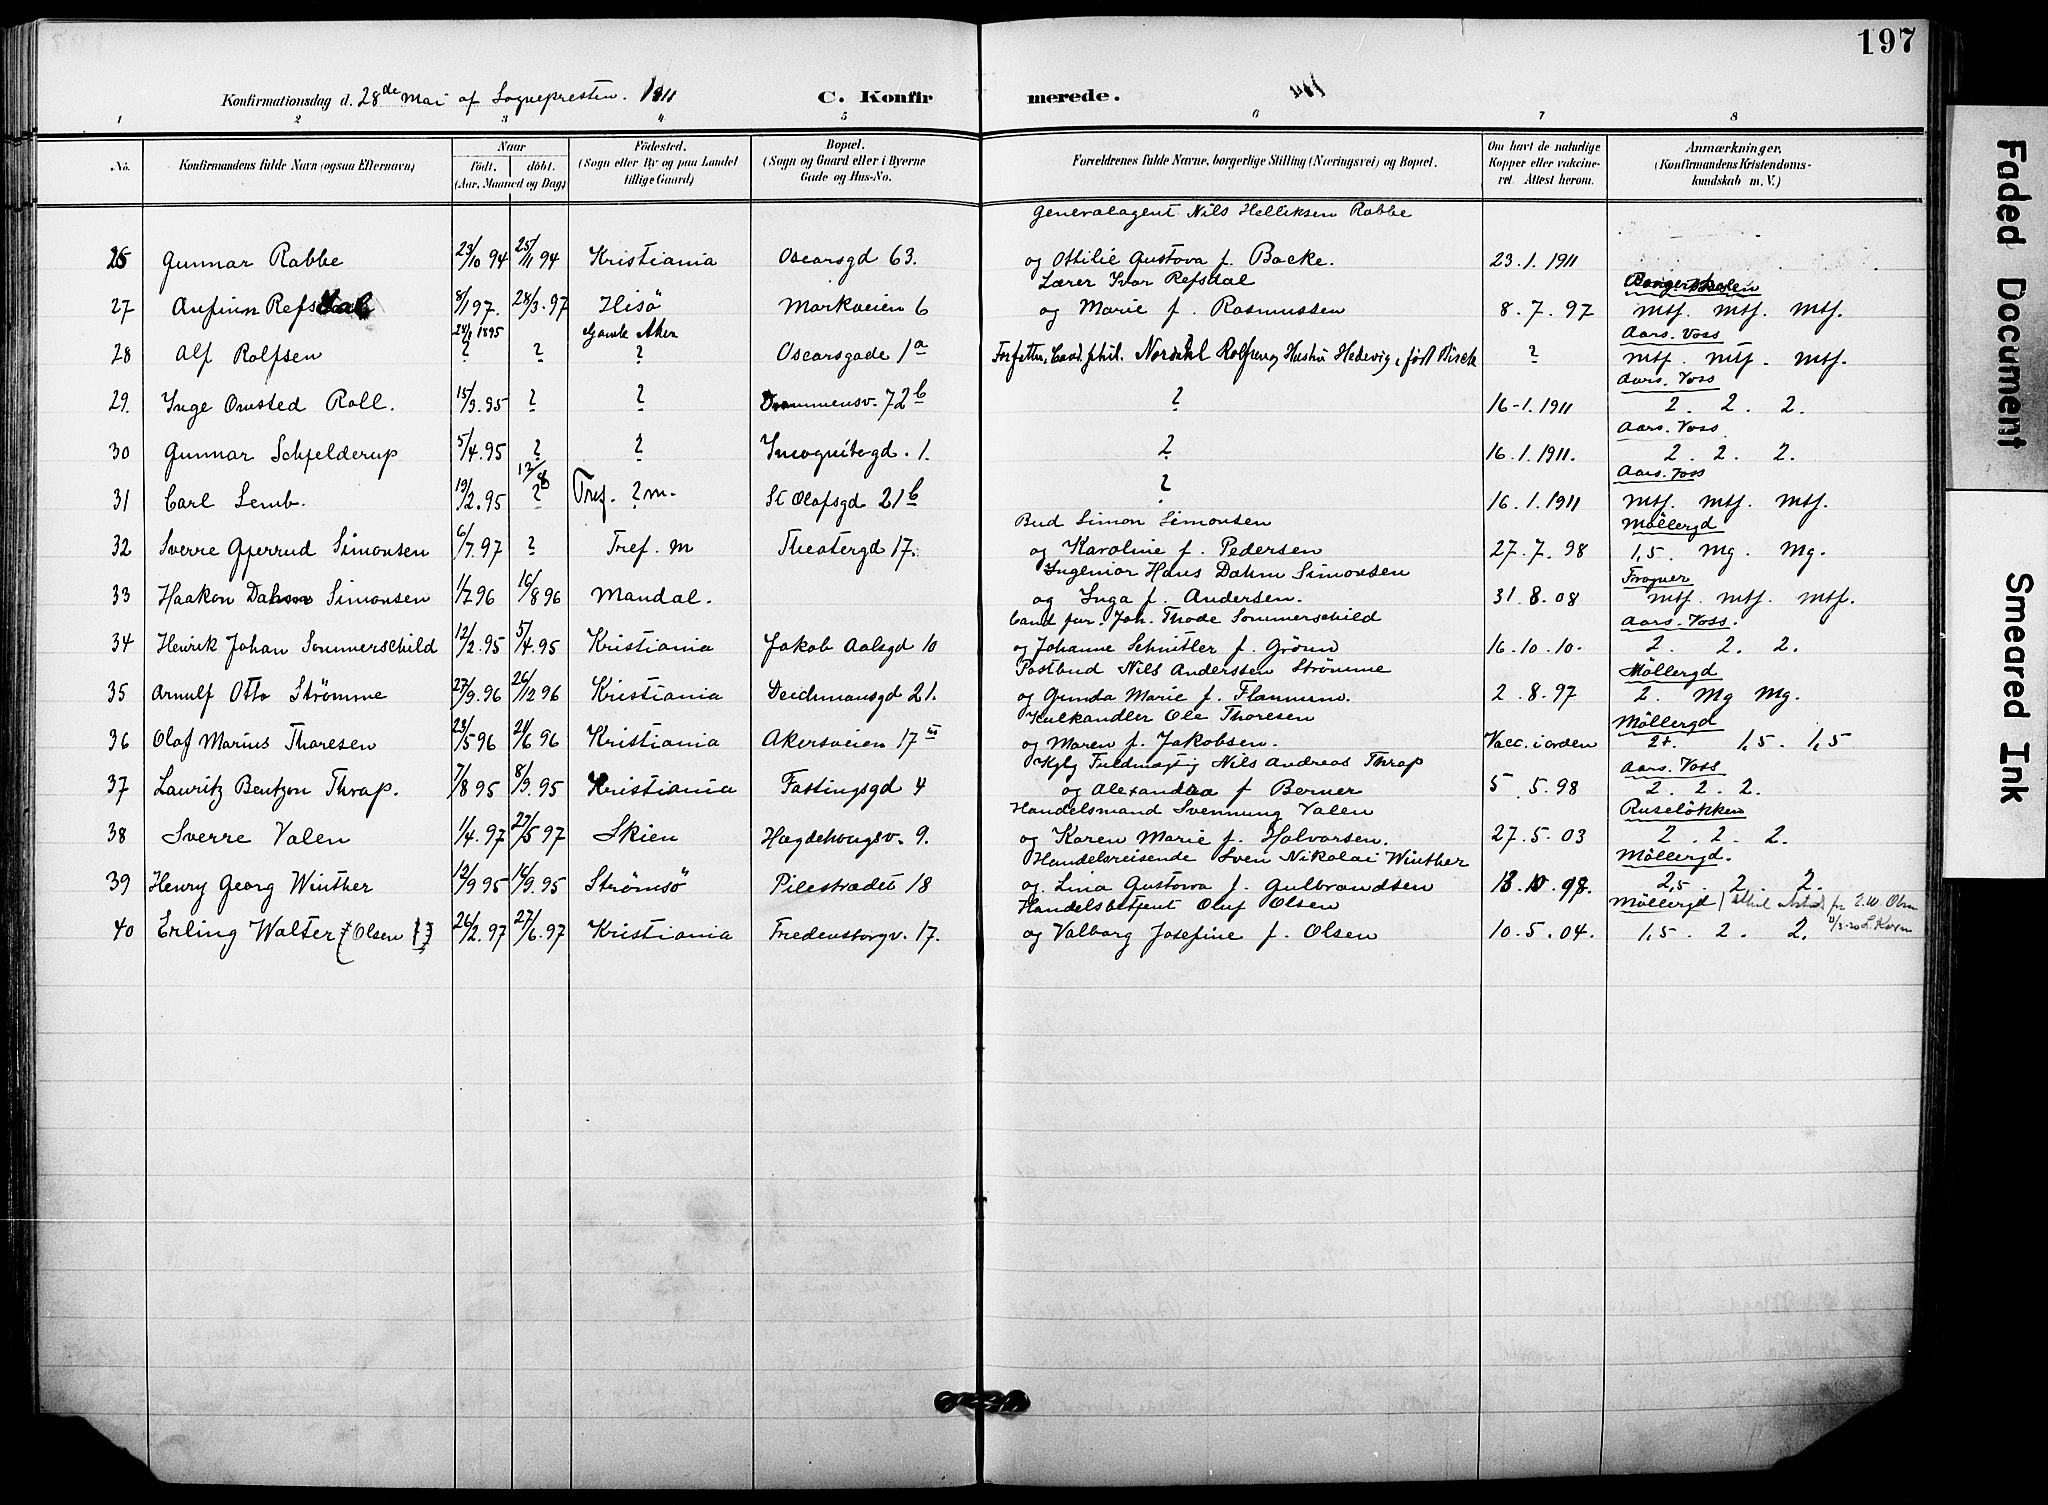 197
Konfirmationsdag d. 28de Mai af Sognepresten. 1911
C. Konfirmerede.
1 2 3 4 5 6 7 8
No. Konfirmandens fulde Navn (ogsaa Efternavn) Naar født. døbt. (Aar, Maaned og Dag) Fødested. (Sogn eller By og paa Landet tillige Gaard) Bopæl. (Sogn og Gaard eller i Byerne Gade og Hus-No. Forældrenes fulde Navne, borgerlige Stilling (Næringsvei) og Bopæl. Om havt de naturlige Kopper eller vakcineret. Attest herom. Anmærkninger. (Konfirmandens Kristendomskundskab m. V.)
Generalagent Nils Helliksen Rabbe
26 Gunnar Rabbe 23/10 94 25/11 94 Kristiania Oscarsgd 63. og Othilie Gustava f. Backe. 23.1.1911
Lærer Ivar Refsdal
27 Anfinn Refsdal 8/1 97. 28/3.97 Hisö Markveien 6 og Marie f. Rasmussen 8.7.97 mtf. mtf. mtf.
24/1 1895 Gamle Aker Aars. Voss
28 Alf Rolfsen ? ? ? Oscarsgade 1a Forfatter, Cand. phil. Nordahl Rolfsen og Hustru Hedevig, født ? mtf. mtf. mtf.
Aars. Voss
29. Inge Omsted Roll. 15/3.95 ? ? Drammensv. 72b ? 16-1.1911 2. 2. 2.
Aars. Voss
30 Gunnar Schjelderup 5/4.95 ? ? Incognitogd. 1. ? 16.1.1911. 2. 2. 2.
12/8 Aars. Voss
31 Carl Lemb. 19/2.95 ? Tref. ? m. St Olafsgd 21b ? 16.1.1911 mtf. mtf. mtf.
Bud Simon Simonsen Möllergd
32 Sverre Gjerrud Simonsen 6/7.97 ? Tref. m Theatergd 17. og Karoline f. Pedersen 27.7.98 1,5. Mg. Mg.
Ingeniör Hans Dahm Simonsen Frogner
33 Haakon Dahm Simonsen 1/7 96 16/8 96 Mandal. og Inga f. Andersen. 31.8.08 mtf. mtf. mtf.
Cand jur. Joh. Thode Sommerschild Aars. Voss.
34 Henrik Johan Sommerschild 12/2.95 5/4.95 Kristiania Jakob Aalsgd 10 og Johanne Schnitler f. Grönn 16.10.10. 2. 2. 2.
Postbud Nils Anderssen Strömme Möllergd
35 Arnulf Otto Strömme 27/9.96 26/12 96 Kristiania Deichmansgd 21. og Gunda Marie f. Flannum. 2.8.97 2. Mg Mg.
Kulkandler Ole Thoresen Möllergd
36 Olaf Marius Thoresen 23/5 96 24/6 96 Kristiania Akersveien 17 og Maren f. Jakobsen. Vacc. i orden 2+. 1,5. 1,5
Kgl Fuldmægtig Nils Andreas Thrap Aars. Voss
37 Lauritz Bentzon Thrap. 7/8 95 8/9.95 Kristiania Fastingsgd 4 og Alexandra f Berner 5.5.98 2. 2. 2.
Handelsmand Svennung Valen Ruselökken
38 Sverre Valen 1/4.97 27/5 97 Skien Hægdehougsv. 9. og Karen Marie f. Halvorsen. 27.5.03 2. 2. 2.
Handelsreisende Sven Nikolai Winther Möllergd.
39 Henry Georg Winther 12/9 95 14/9.95 Strömsö Pilestrædet 18 og Lina Gustava f. Gulbrandsen 13.10.98. 2,5. 2. 2.
Handelsbetjent Oluf Olsen Möllergd
40 Erling Walter (Olsen) 26/2.97 27/6.97 Kristiania Fredensborgv. 17. og Valborg Josefine f. Olsen 10.5.04. 1,5. 2. 2.
Faded Document
Smeared Ink